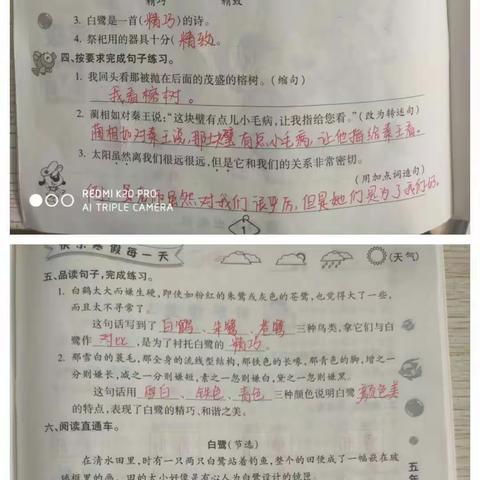 精巧 精致
3. 白鹭是一首(精巧)的诗。
4. 祭祀用的器具十分(精致。
四、按要求完成句子练习。
1. 我回头看那被抛在后面的茂盛的榕树。(缩句)
我看榕树。
2. 蔺相如对秦王说:“这块璧有点儿小毛病,让我指给您看。”(改为转述句)
蔺相如对秦王说,那块璧有点小毛病,让他指给秦王看。
3. 太阳虽然离我们很远很远,但是它和我们的关系非常密切。
(用加点词造句)
虽然对我们很严厉,但是她们是为了我们好。
REDMI K20 PRO
AI TRIPLE CAMERA
1
快乐寒假每一天
(天气)
五、品读句子,完成练习。
1. 白鹤太大而嫌生硬,即使如粉红的朱鹭或灰色的苍鹭,也觉得大了一些,
而且太不寻常了。
这句话写到了 白鹤、朱鹭、苍鹭 三种鸟类,拿它们与白
鹭作 对比 ,是为了衬托白鹭的 精巧。
2. 那雪白的蓑毛,那全身的流线型结构,那铁色的长喙,那青色的脚,增之一
分则嫌长,减之一分则嫌短,素之一忽则嫌白,黛之一忽则嫌黑。
这句话用 雪白、铁色、青色 三种颜色说明白鹭 颜色美
的特点,表现了白鹭的精巧、和谐之美。
六、阅读直通车。
白鹭(节选)
在清水田里,时有一只两只白鹭站着钓鱼,整个的田便成了一幅嵌在玻
璃框里的画。田的大小好像是有心人为白鹭设计的镜匣。
五年